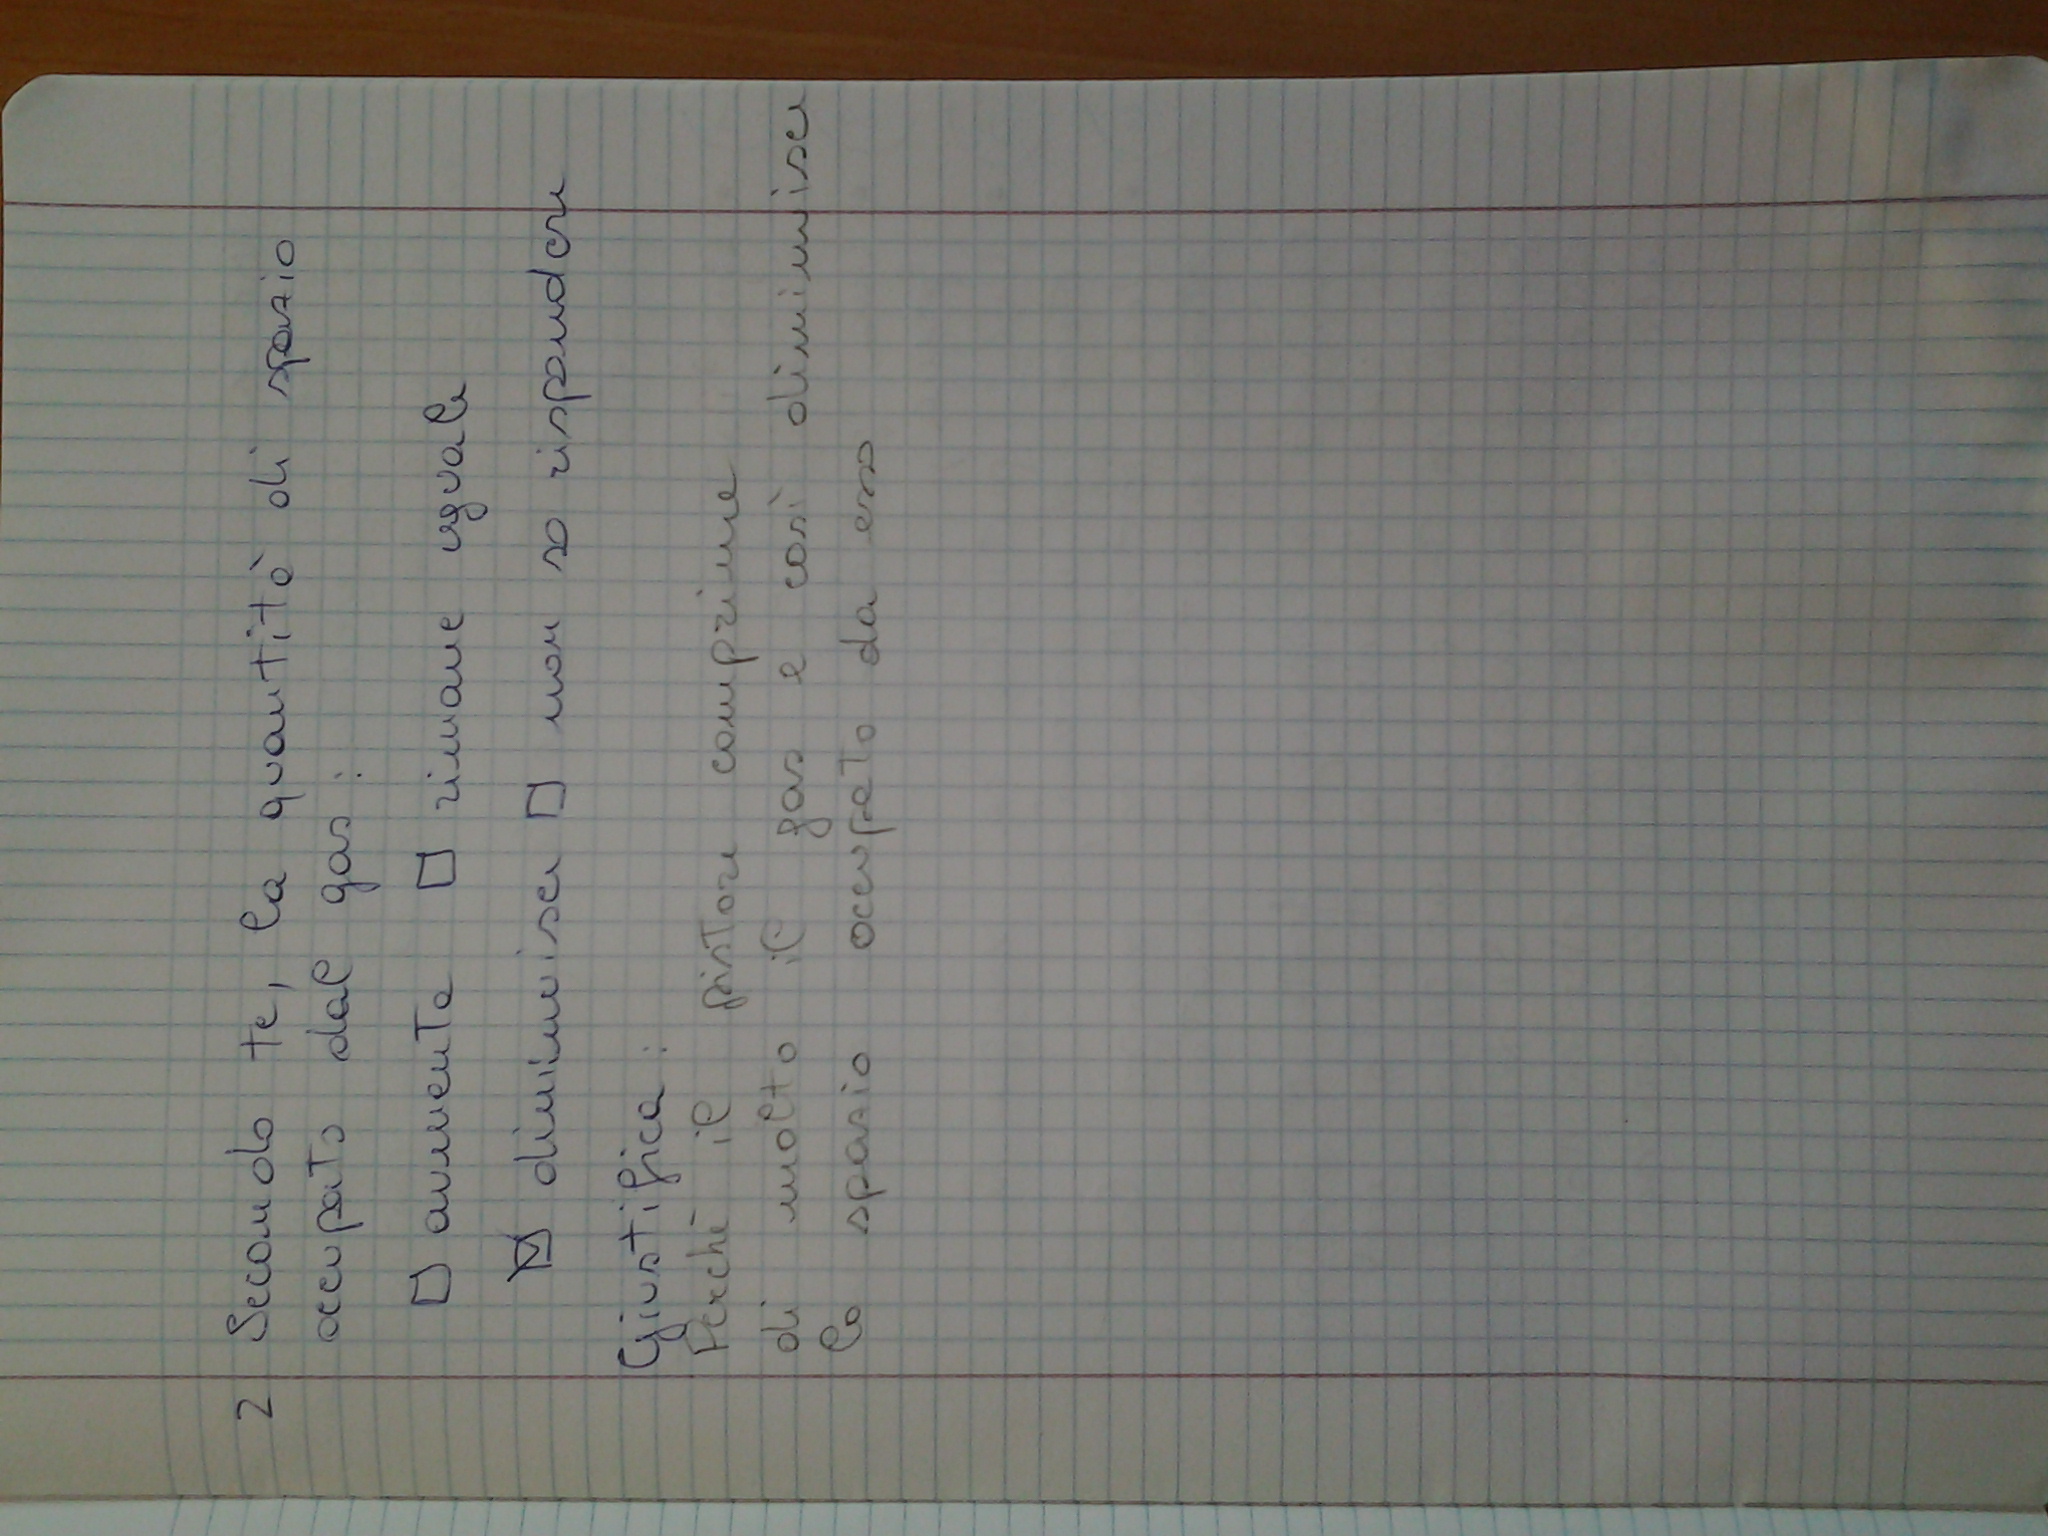 2 Secondo te, la quantità di spazio
occupato dal gas:
☐ aumenta ☐ rimane uguale
☒ diminuisce ☐ non so rispondere
Giustifica:
Perché il pistone comprime
di molto il gas e così diminuisce
lo spazio occupato da esso